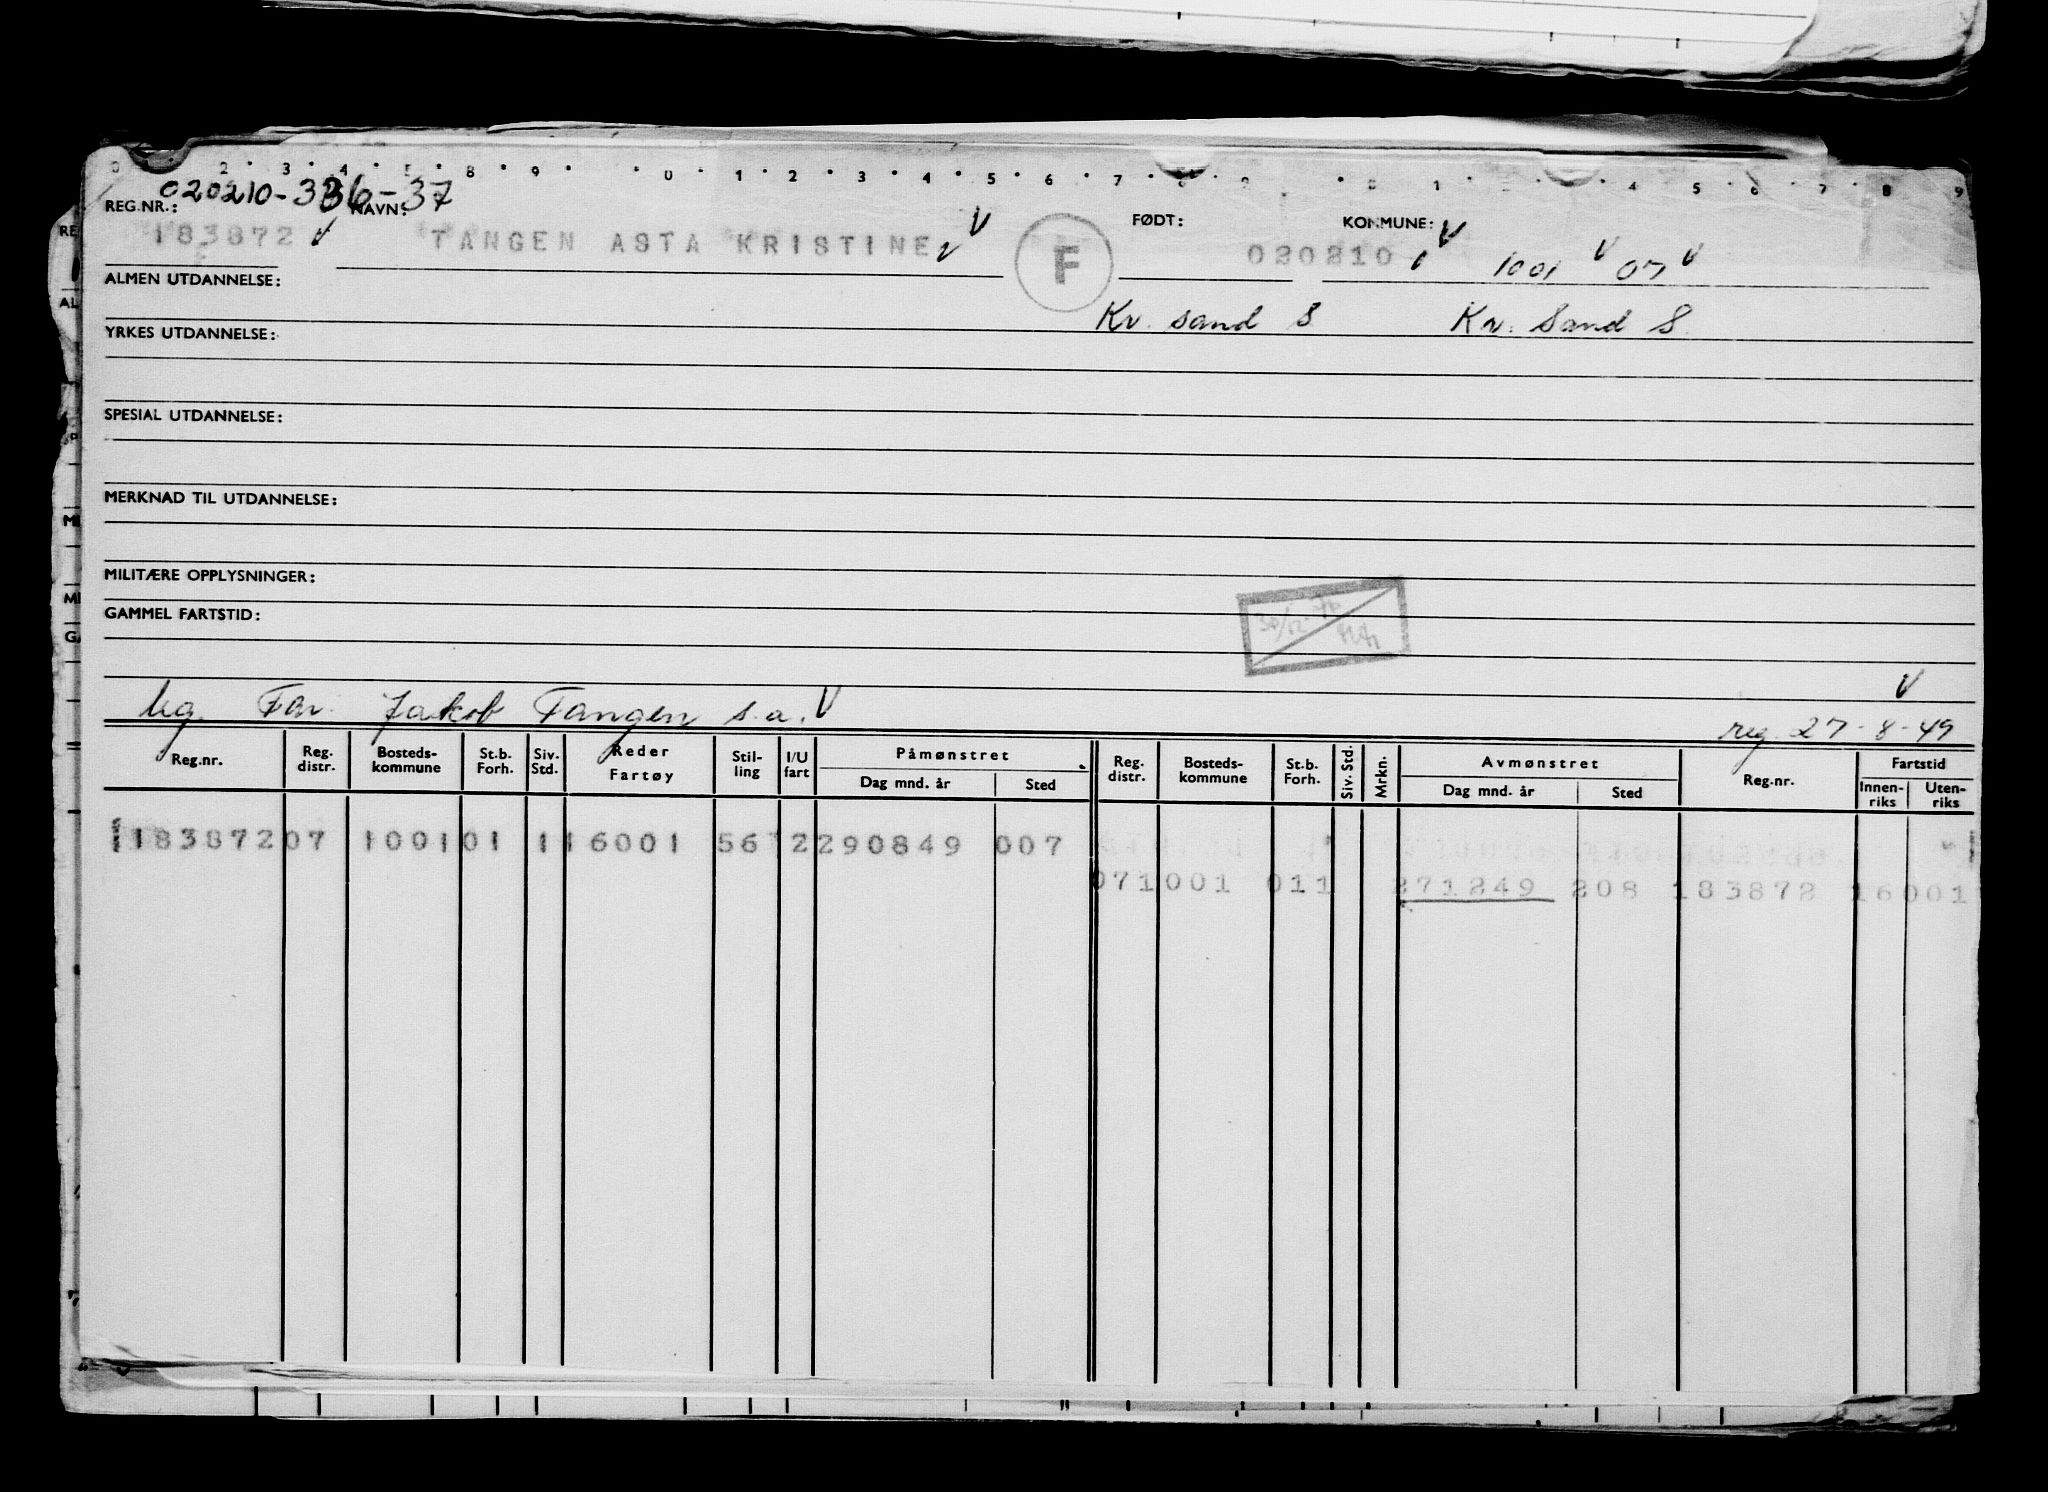 0 2 3 4 5 8 9 0 1 2 3 4 5 6 7 8 9 0 1 4 5 6 7 8 9
020210-336-37
REG.NR.: NAVN: FØDT: KOMMUNE:
183872 TANGEN ASTA KRISTINE F 020210 1001 07
ALMEN UTDANNELSE:
Kr. sand S Kr. Sand S.
YRKES UTDANNELSE:
SPESIAL UTDANNELSE:
MERKNAD TIL UTDANNELSE:
MILITÆRE OPPLYSNINGER:
GAMMEL FARTSTID:
30/12-76
ug. Far. Jakob Tangen s.a.
reg. 27-8-49
Reg.nr. Reg. distr. Bosteds-kommune St.b. Forh. Siv. Std. Reder Fartøy Stil-ling I/U fart Påmønstret Dag mnd. år Sted Reg. distr. Bosteds-kommune St.b. Forh. Siv. Std. Mrkn. Avmønstret Dag mnd. år Sted Reg.nr. Fartstid Innen-riks Uten-riks
183872 07 1001 01 1 16001 56 2 290849 007
07 1001 011 271249 208 183872 16001